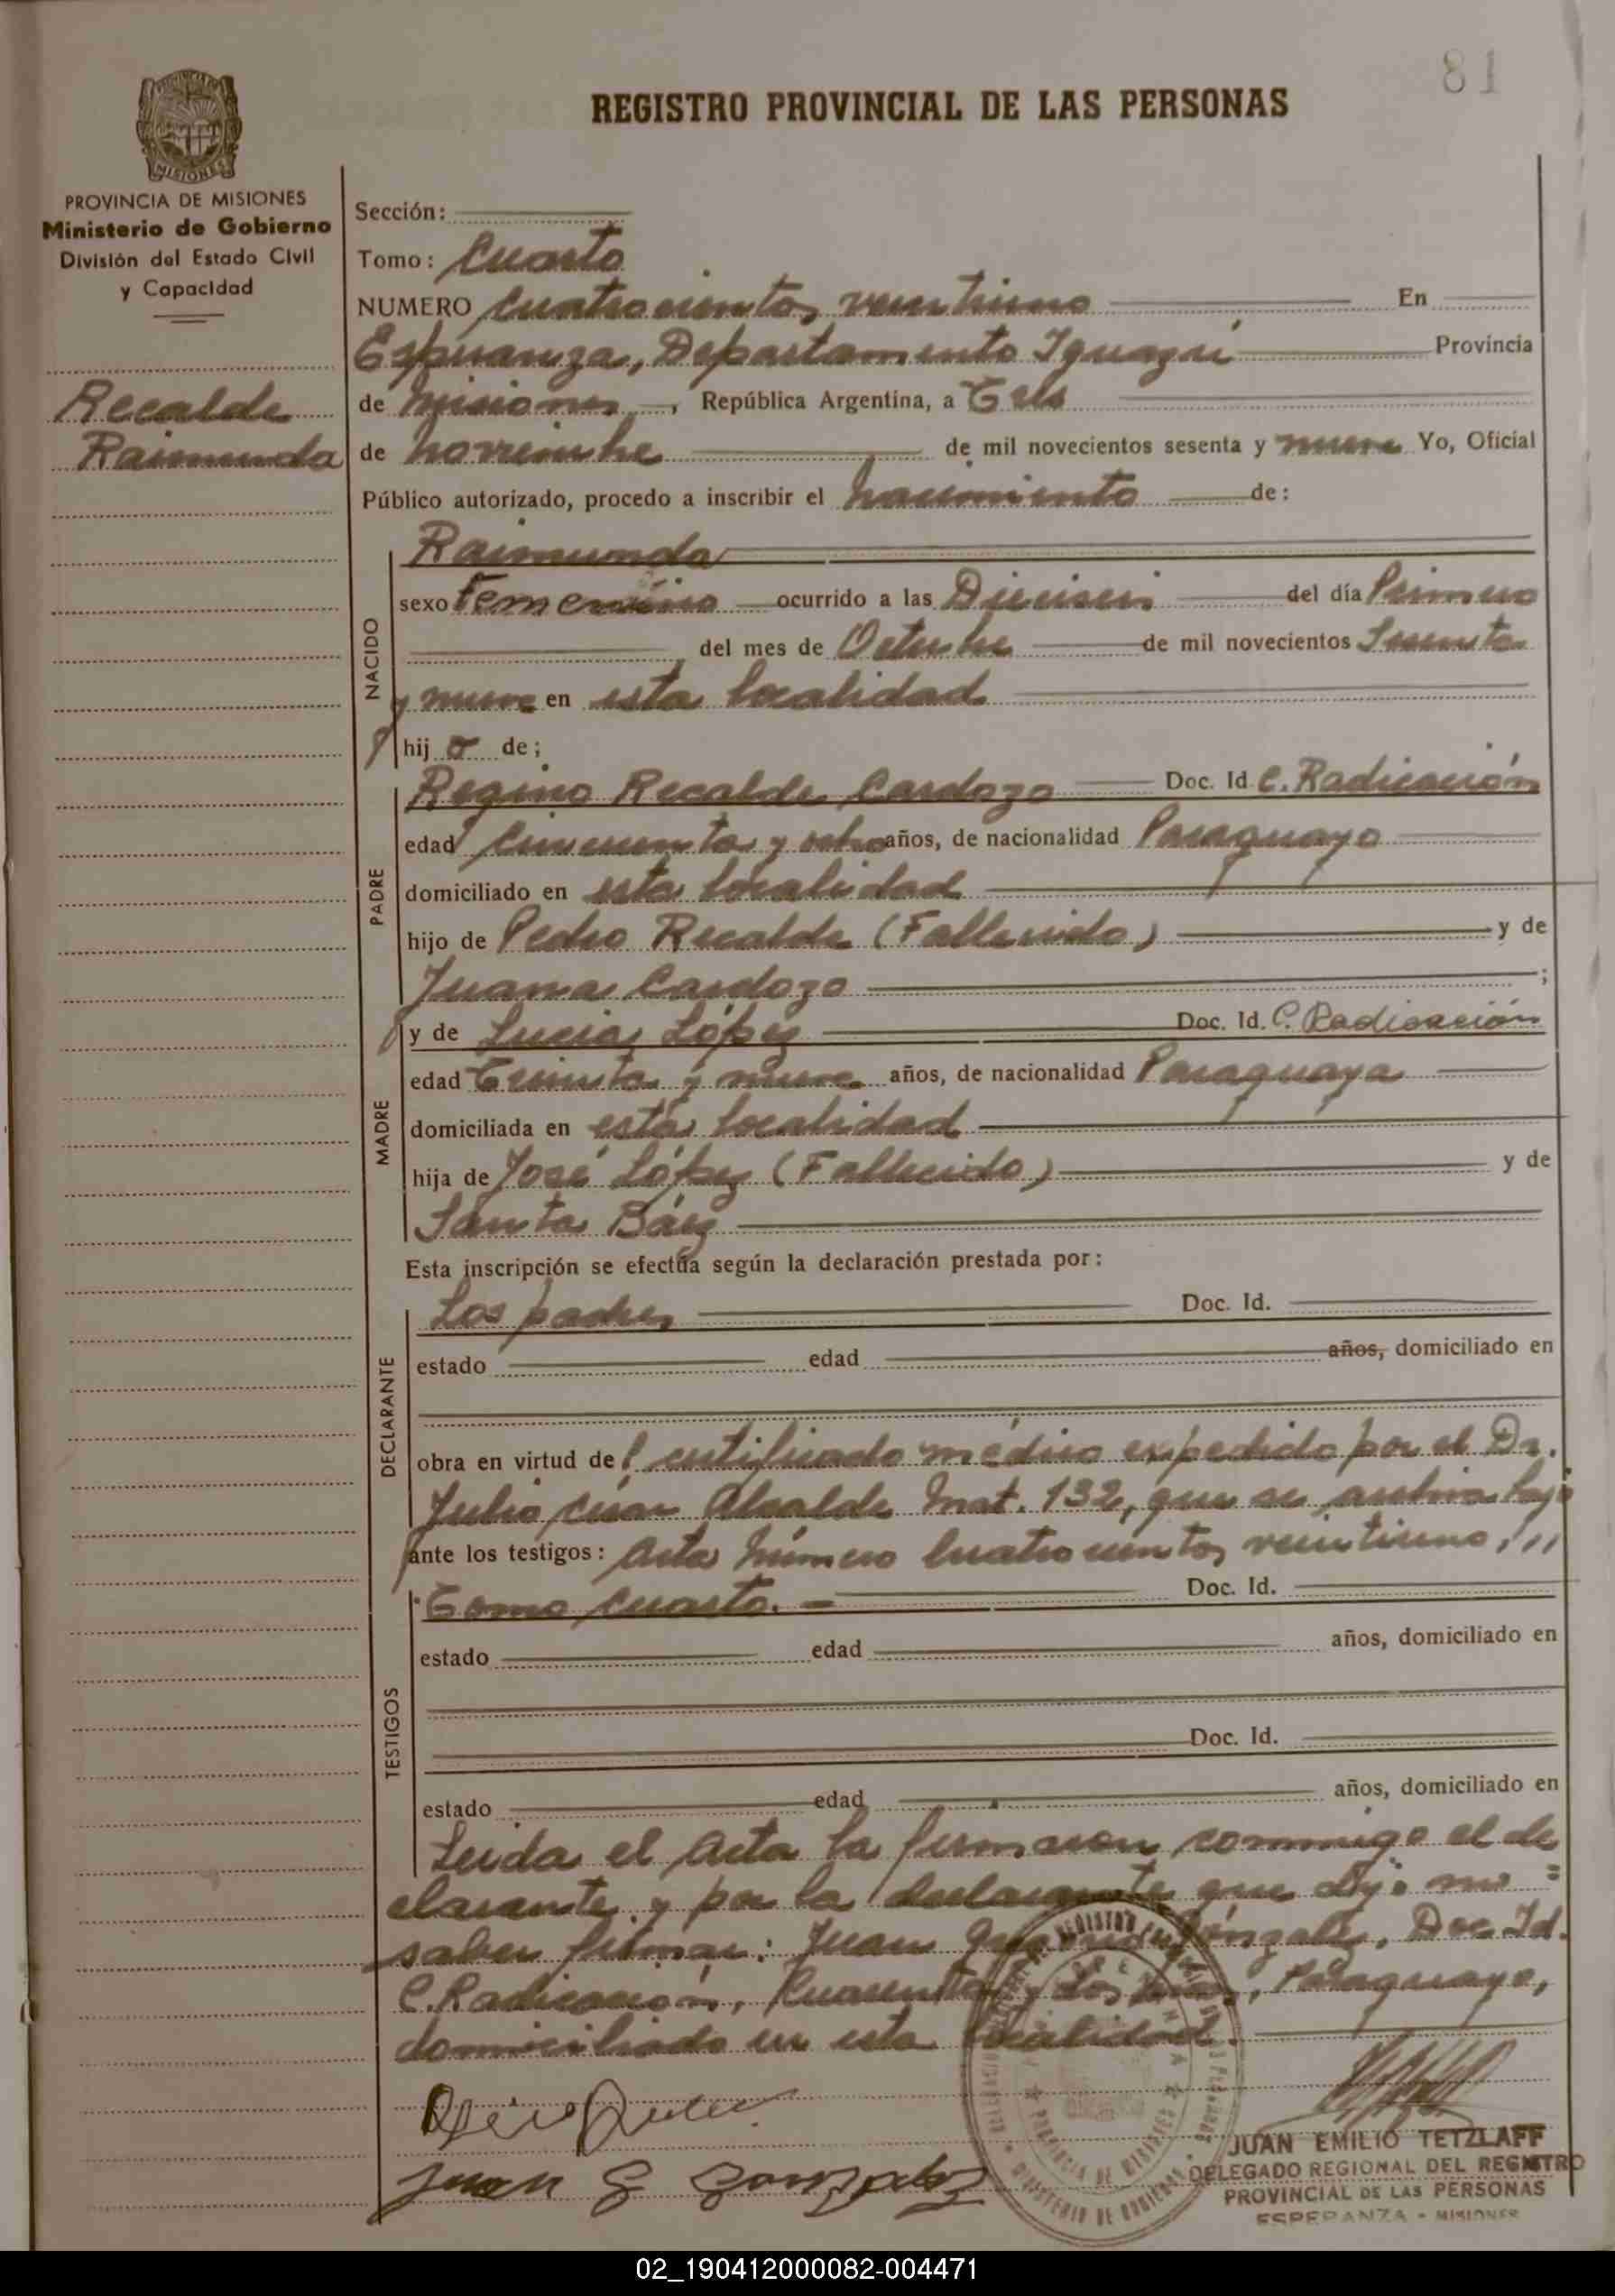 81
REGISTRO PROVINCIAL DE LAS PERSONAS
MISIONES
PROVINCIA DE MISIONES
Ministerio de Gobierno
División del Estado Civil
y Capacidad
Recalde
Raimunda
Sección:
Tomo: Cuarto
NUMERO Cuatrocientos veintiuno En
Esperanza, Departamento Iguazú Provincia
de Misiones, República Argentina, a Tres
de Noviembre de mil novecientos sesenta y nueve Yo, Oficial
Público autorizado, procedo a inscribir el Nacimiento de:
NACIDO
Raimunda
sexo Femenino ocurrido a las Dieciseis del día Primero
del mes de Octubre de mil novecientos Sesenta
y nueve en esta localidad
hij a de;
PADRE
Regino Recalde Cardozo Doc. Id. C. Radicación
edad Cincuenta y ocho años, de nacionalidad Paraguayo
domiciliado en esta localidad
hijo de Pedro Recalde (Fallecido) y de
Juana Cardozo ;
MADRE
y de Lucia López Doc. Id. C. Radicación
edad Treinta y nueve años, de nacionalidad Paraguaya
domiciliada en esta localidad
hija de José López (Fallecido) y de
Santa Báez
Esta inscripción se efectúa según la declaración prestada por:
DECLARANTE
Los padres Doc. Id.
estado edad años, domiciliado en
obra en virtud de l certificado médico expedido por el Dr.
Julio César Alcalde Mat. 132, que se archiva bajo
ante los testigos: Acta Número Cuatrocientos veintiuno,
TESTIGOS
Tomo Cuarto. - Doc. Id.
estado edad años, domiciliado en
Doc. Id.
estado edad años, domiciliado en
Leida el Acta la firmaron conmigo el de
clarante y por la declarante que dijo no =
saber firmar: Juan González, Doc. Id.
C. Radicación, Cuarenta y dos años, Paraguayo,
domiciliado en esta localidad.
Juan G Gonzalez
JUAN EMILIO TETZLAFF
DELEGADO REGIONAL DEL REGISTRO
PROVINCIAL DE LAS PERSONAS
ESPERANZA - MISIONES
02_190412000082-004471